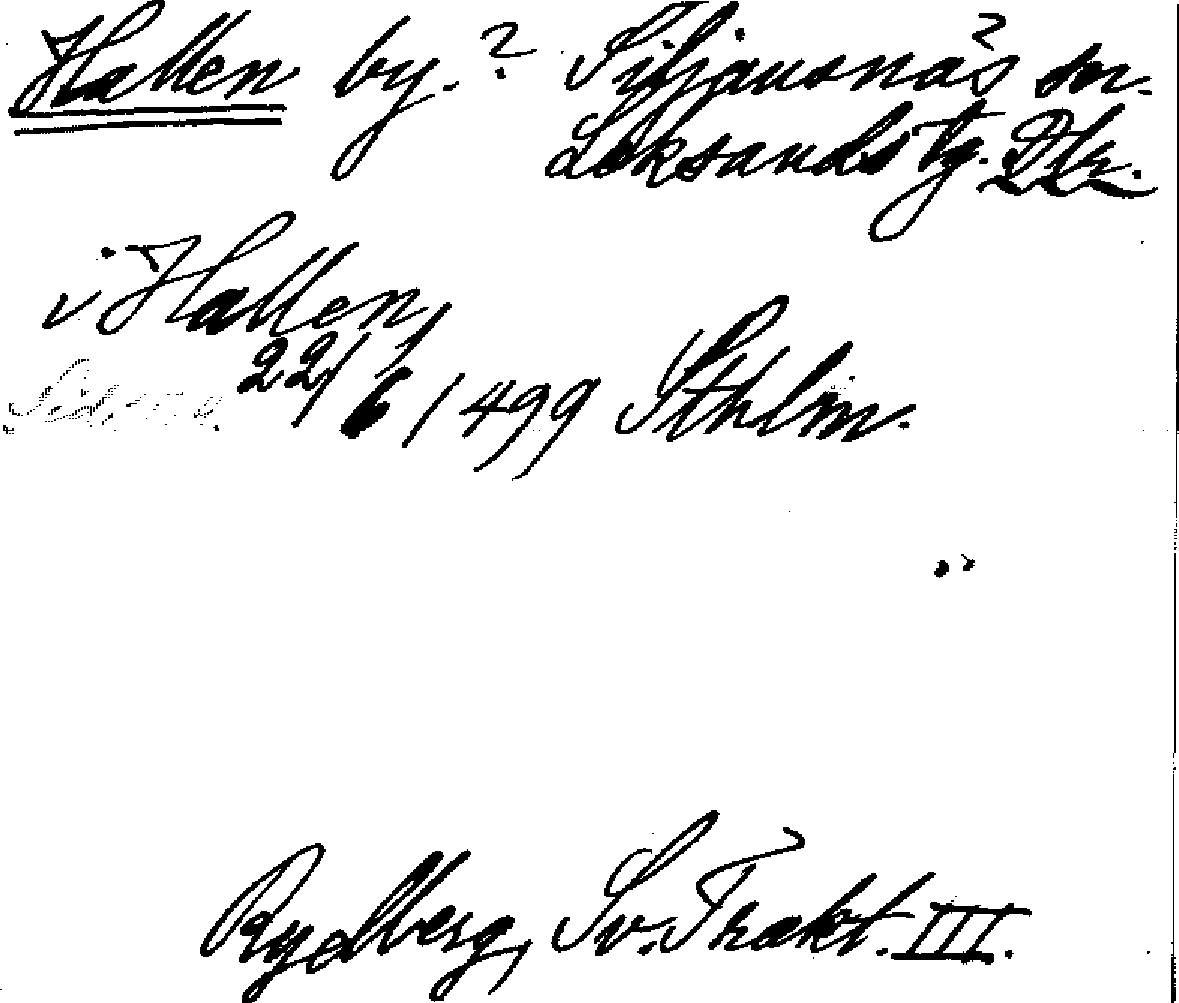 Hallen by.? Siljansnäs sn.
Leksands tg. Dlr.
i Hallen
22/6 1499 Sthlm.
Rydberg, Sv. Trakt. III.